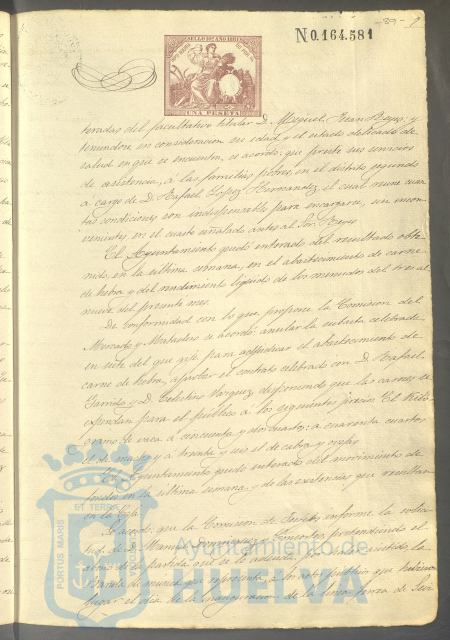 -89-
N 0.164.581
SELLO 10º AÑO 1881
UNA PESETA
teradas del facultativo titular D. Miguel Juan Reyes; y
teniendose en consideracion su edad y el estado delicado de
salud en que se encuentra, se acordó: que preste sus servicios
de asistencia, a las familias pobres, en el distrito segundo
a cargo de D. Rafael Lopez Hernandez el cual reune cuan
tas condiciones son indispensables para encargarse, sin incon
veniente, en el cuarto señalado antes al Sor. Reyes.
El Ayuntamiento quedó enterado del resultado obte
nido, en la ultima semana, en el abastecimiento de carne
de hebra y del rendimiento liquido de los menudos del tres al
nueve del presente mes.
De conformidad con lo que propone la Comision del
Mercado y Matadero se acordó: anular la subasta celebrada
en siete del que rije para adjudicar el abastecimiento de
carne de hebra, aprobar el contrato celebrado con D. Rafael
Garrido y D. Celestino Vazquez disponiendo que las carnes se
expendan para el publico a los siguientes precios: El Kilo
gramo de vaca á cincuenta y dos cuartos: a cuarenta cuartos
el de macho y á treinta y seis el de cabra y oveja.
El Ayuntamiento quedó enterado del movimiento de
fondos en la ultima semana y de las existencias que resultan
en la Caja.
Se acordó: que la Comision de Festejos informe la solici
tud de D. Manuel
abono de la partida que se le adeuda
Banda de musica que representa
lugar el dia de la inauguracion de la linea ferrea de Sevi
PORTUS MARIS
ET TERRÆ
Ayuntamiento de
HUELVA